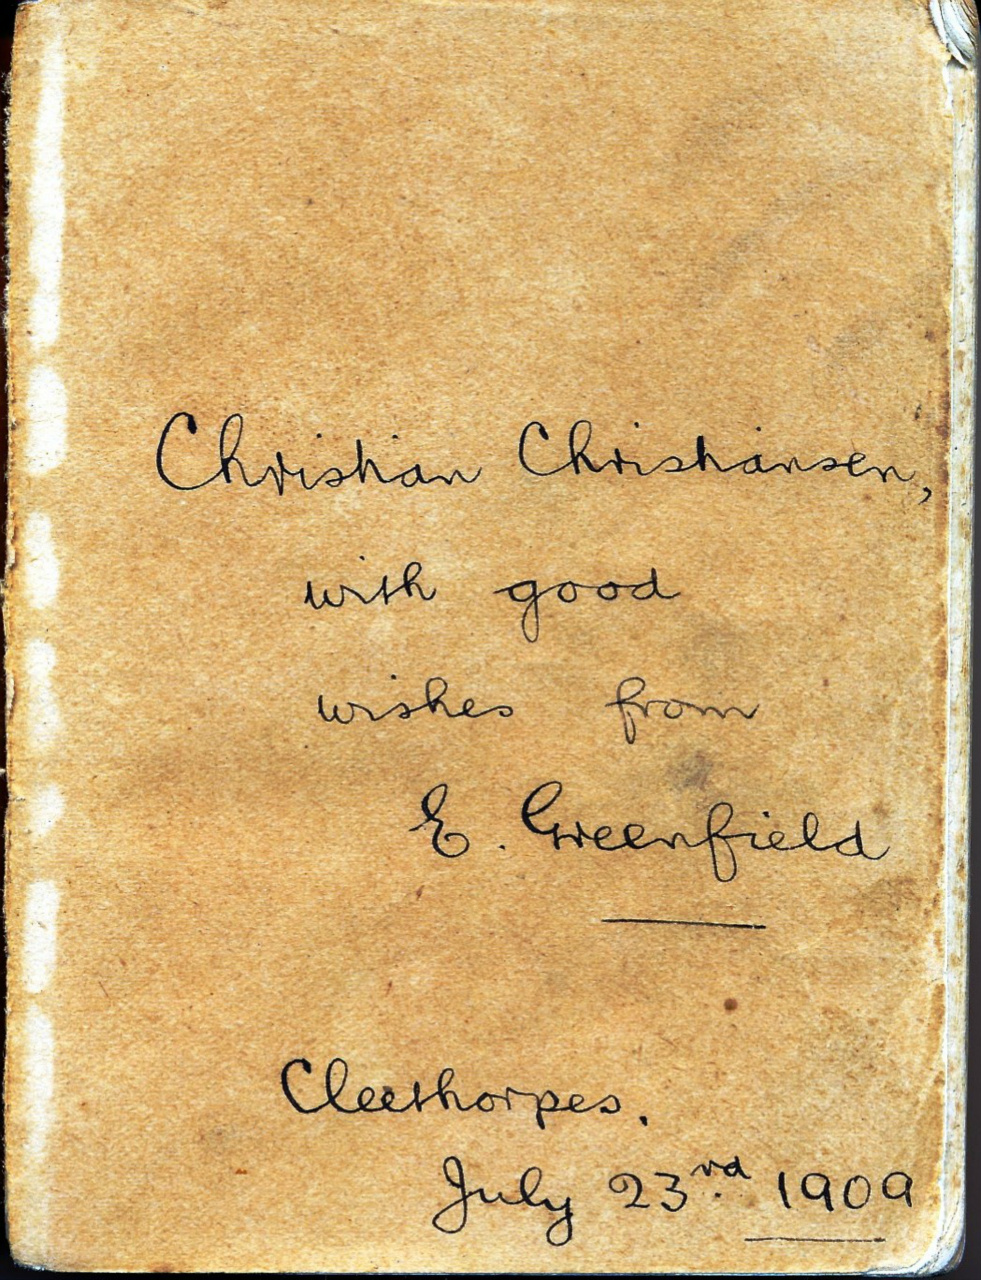 Christian Christiansen,
with good
wishes from
E. Greenfield
Cleethorpes.
July 23rd 1909